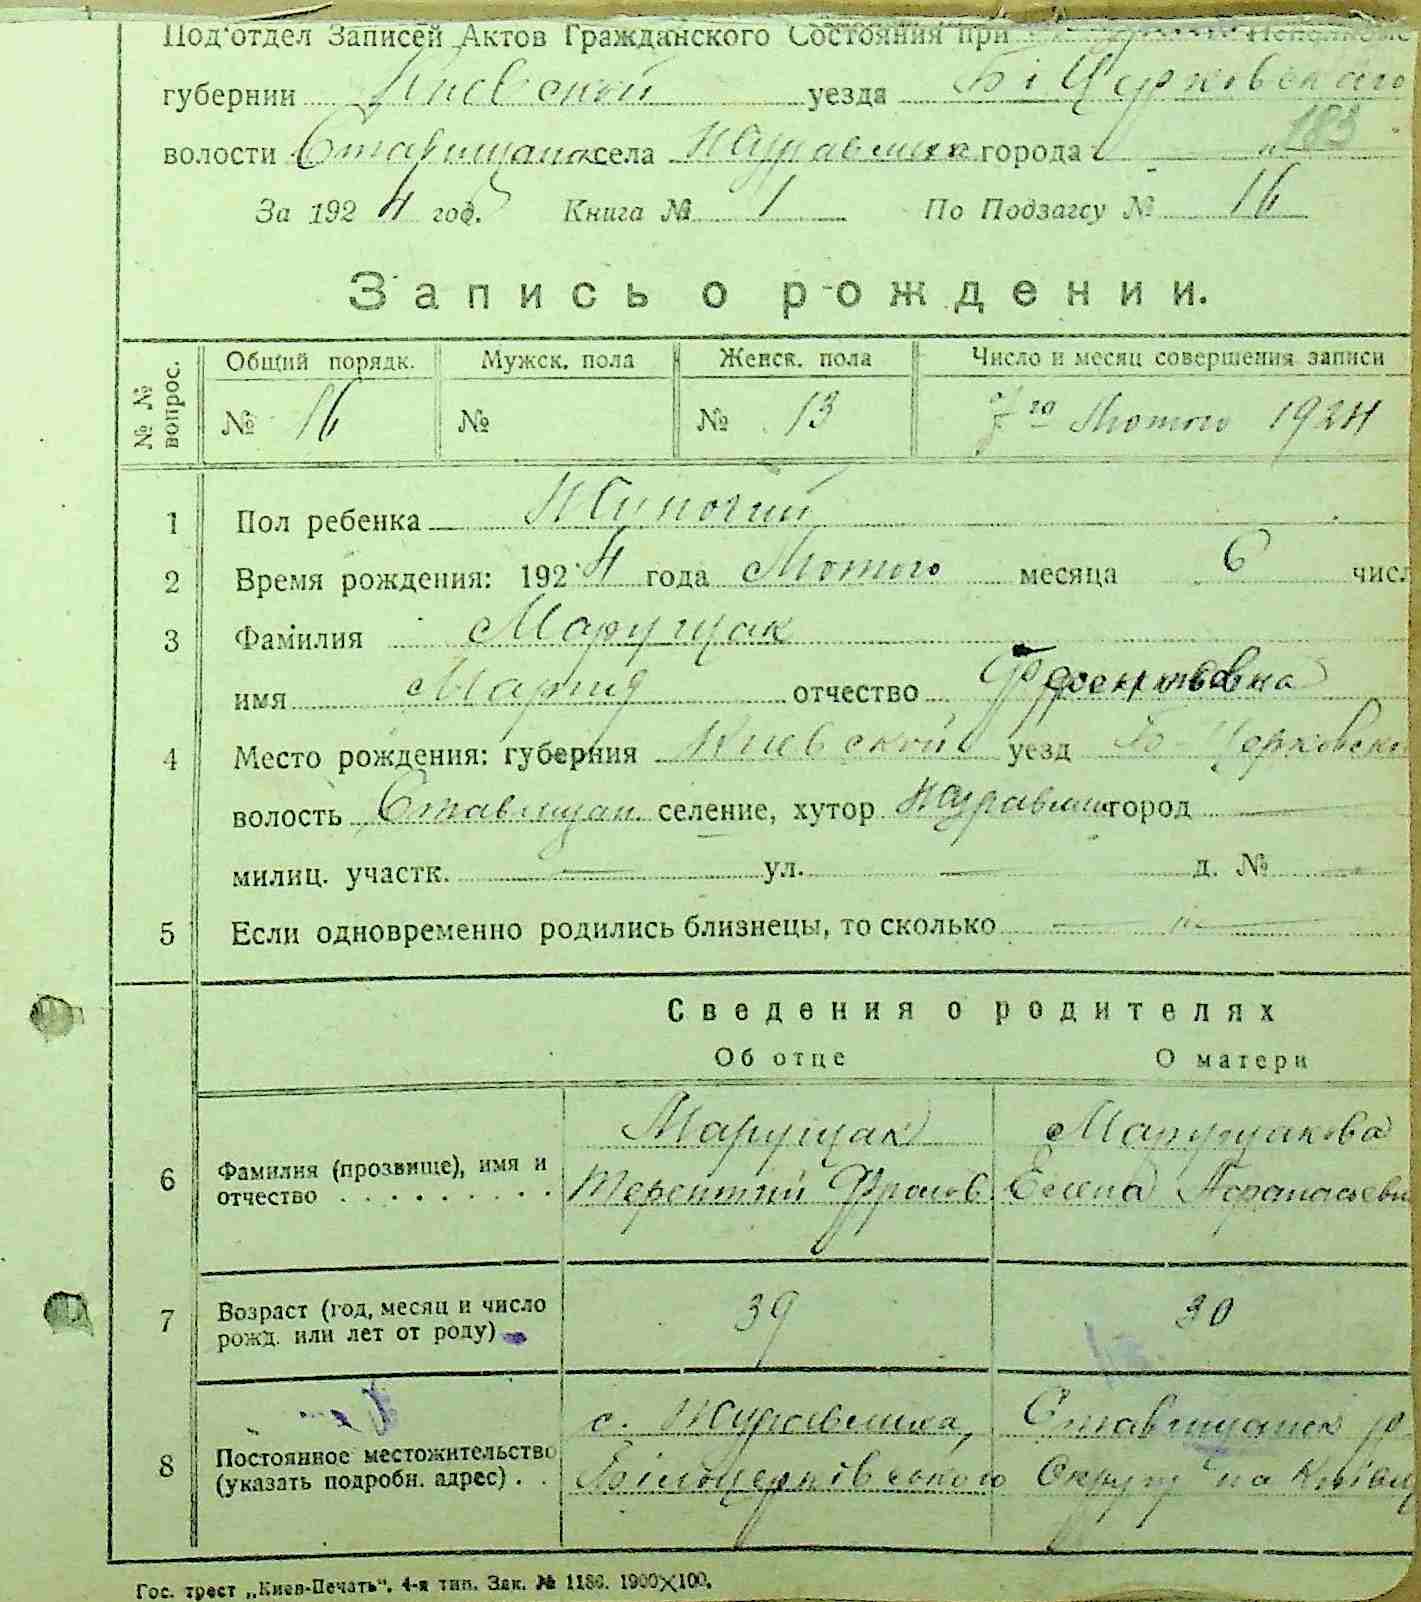 Под'отдел Записей Актов Гражданского Состояния при
губернии Киевской уезда Бі Церковского
волости Ставищанск села Журавлиха города " 183
За 1924 год. Книга № 1 По Подзагсу № 16
Запись о рождении.
№ № вопрос. Общий порядк. Мужск. пола Женск. пола Число и месяц совершения записи
№ 16 № № 13 7го Лютого 1924
1 Пол ребенка Жиночий
2 Время рождения: 1924 года Лютого месяца 6 числ
3 Фамилия Марущак
имя Мария отчество
4 Место рождения: губерния Киевской уезд Б-Церковско
волость Ставищан. селение, хутор Журавлих город —
милиц. участк. — ул. — д. № —
5 Если одновременно родились близнецы, то сколько — " —
Сведения о родителях
Об отце О матери
Марущак Марущакова
6 Фамилия (прозвище), имя и
отчество . . . . . . . . . . Терентий Фролов Елена Афанасьевн
7 Возраст (год, месяц и число
рожд. или лет от роду) 39 30
с. Журавлиха, Ставищанск р.
8 Постоянное местожительство
(указать подробн. адрес) . . Білоцерківського Округу на Київщ
Гос. трест „Киев-Печать“. 4-я тип. Зак. № 1186. 1900×100.